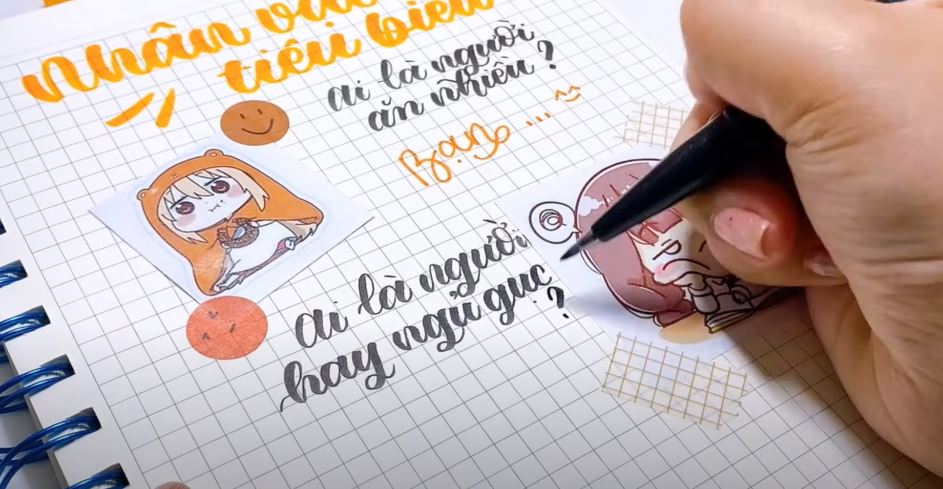 Nhân vật
tiêu biểu
Ai là người
ăn nhiều?
Bạn... ^^
Ai là người
hay ngủ gục
?